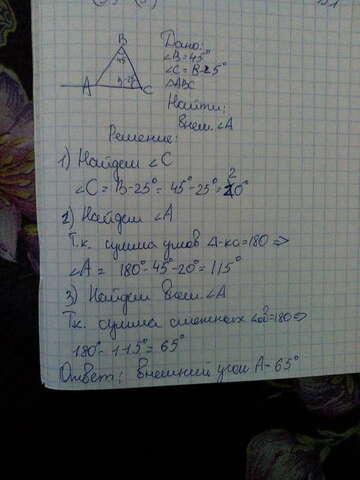 B
45°
A
B-25°
C
Дано:
∠B=45°
∠C=B-25°
△ABC
Найти:
внеш. ∠A
Решение:
1) Найдем ∠C
∠C = B-25° = 45°-25° = 20°
2) Найдем ∠A
Т.к. сумма углов △-ка=180 =>
∠A = 180°-45°-20°=115°
3) Найдем внеш. ∠A
Т.к. сумма смежных ∠ов=180=>
180°-115°=65°
Ответ: внешний угол A-65°